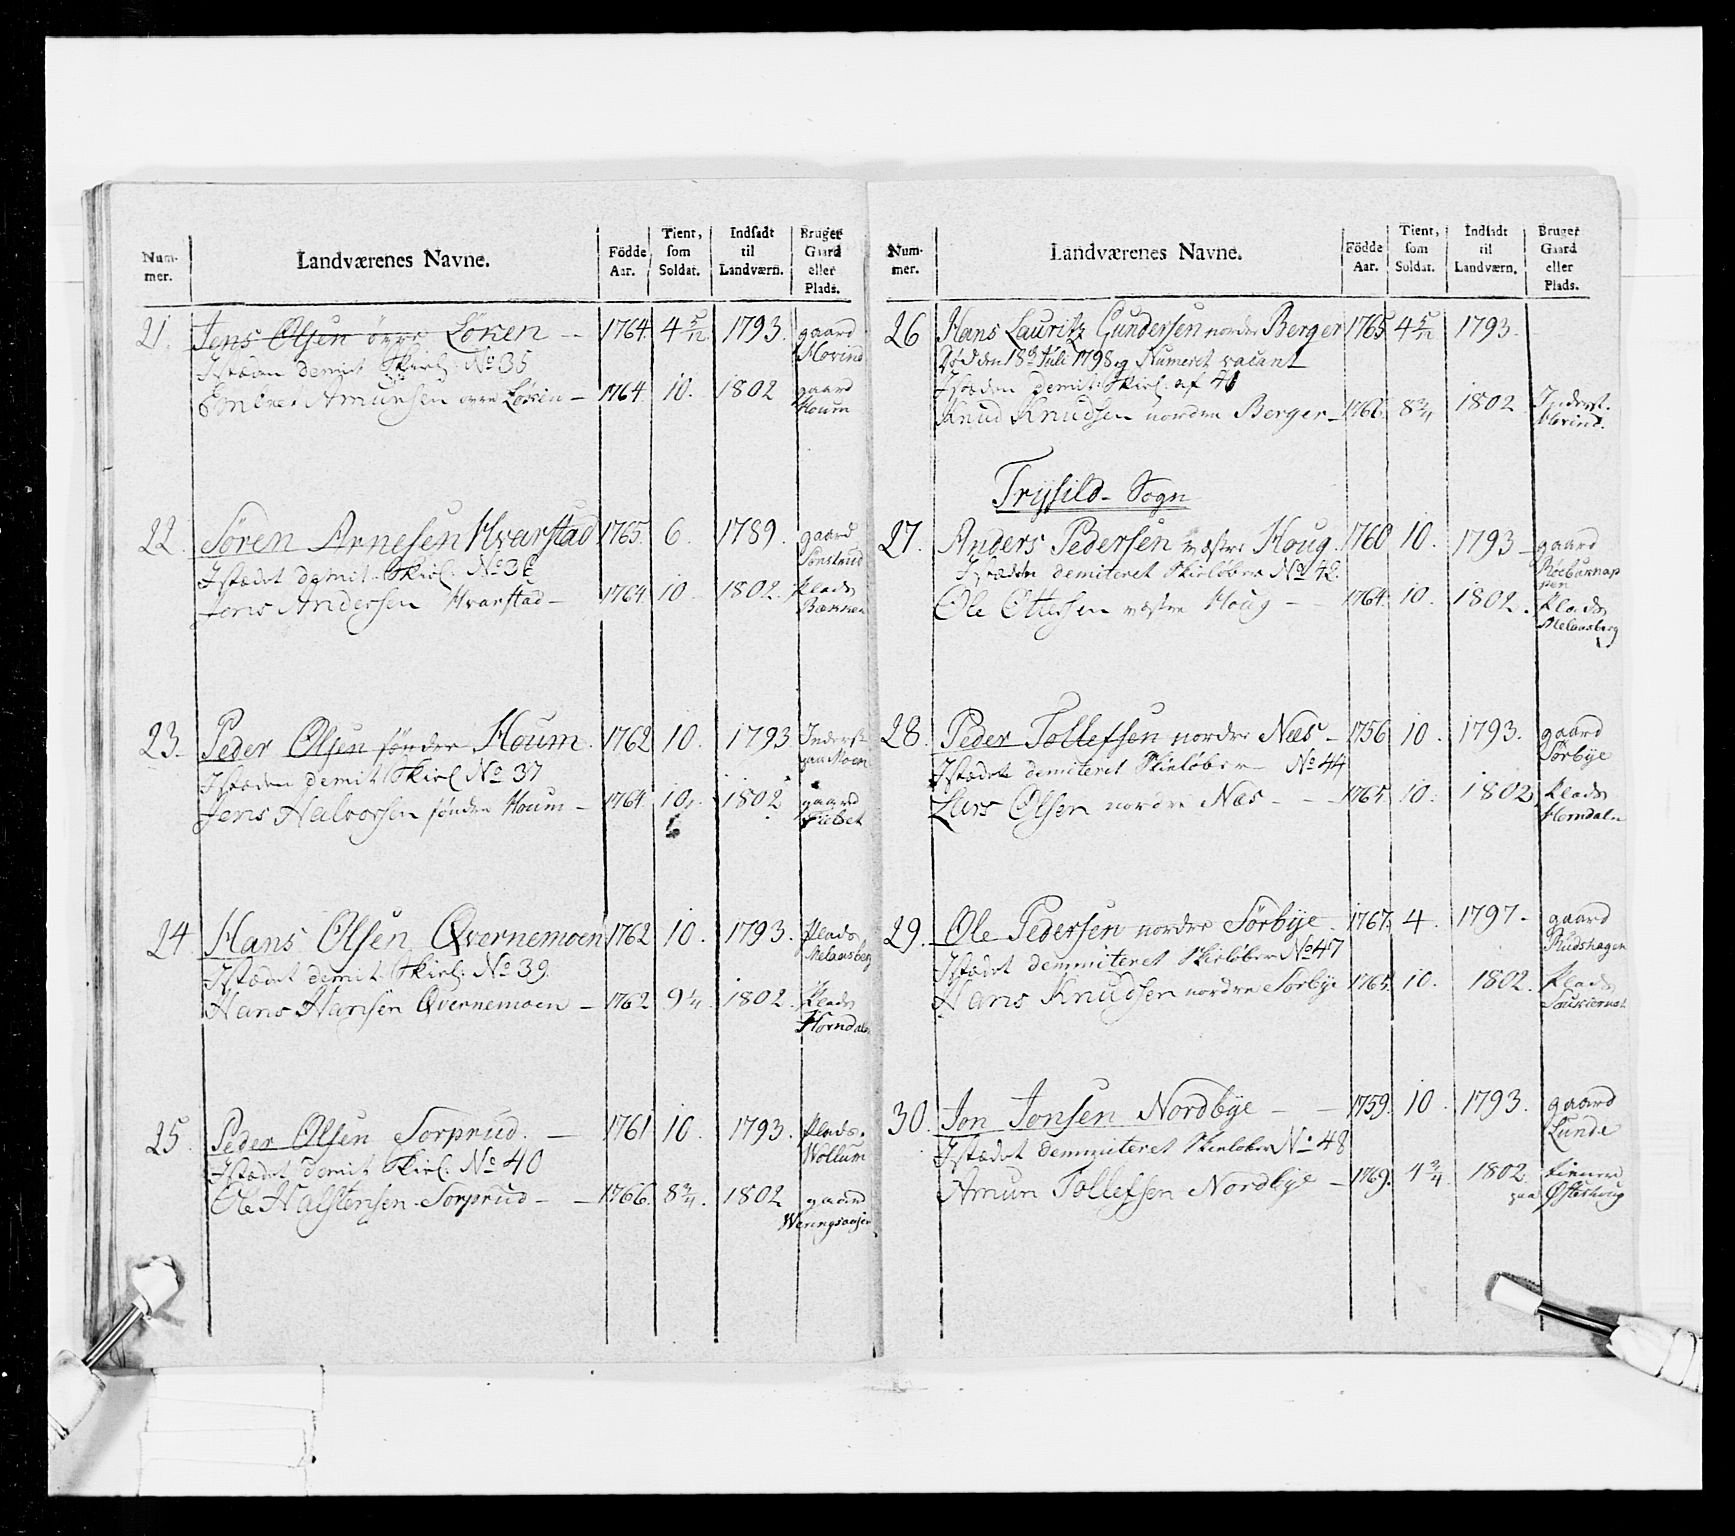 Num-
mer.
Landværenes Navne.
Födde
Aar.
Tient,
som
Soldat.
Indsadt
til
Landværn.
Bruger
Gaard
eller
Plads.
21. Jens Olsen övre Löken — 1764. 4 5/12. 1793. gaard
Istæden demit Skiel: No 35 Hovind
Embret Amunsen övre Löken — 1764. 10. 1802 gaard
Houm
22. Sören Arnesen Hvarstad 1765. 6. 1789. gaard
Sonstrud
Istædet demit. Skiel: No 36
Jens Andersen Hvarstad — 1764. 10 1802. Plads
23. Peder Olsen söndre Houm. 1762 10. 1793 Inderst
Istæden demit Skiel No 37 paa Moen
Jens Halvorsen söndre Houm — 1764. 10. 1802 gaard
6
24 Hans Olsen Qvernemoen 1762 10. 1793. Plads
Melaasberg
Istædet demit. Skiel: No 39.
Hans Hansen Qvernemoen — 1762 9 1/4. 1802. Plads
Horndalen
25. Peder Olsen Sorprud. — 1761 10. 1793. Plads.
Wollum
Istædet demit Skiel: No 40
Ole Halstensen Sorprud — 1766. 8 3/4. 1802 gaard
Num-
mer.
Landværenes Navne.
Födde
Aar.
Tient,
som
Soldat.
Indsadt
til
Landværn.
Bruger
Gaard
eller
Plads.
26 Hans Lauritz Gundersen nordre Berger 1765 4 5/12 1793.
Död den 18de Juli 1798 og Numeret vacant
Istæden demit Skiel: af 41
Knud Knudsen nordre Berger — 1766. 8 3/4 1802 Inderst.
Hovind.
Trysild - Sogn
27. Anders Pedersen væstre Houg. 1760 10. 1793 — gaard
Istæden demiteret Skielöber No 42.
Ole Ottesen væstre Houg — 1764. 10. 1802. Plads
Melaasberg
28. Peder Tollefsen nordre Næs — 1756 10. 1793. gaard
Sörbye
Istædet demiteret Skielöber — No 44
Lars Olsen nordre Næs - - - 1765. 10. 1802 Plads
Horndaln
29. Ole Pedersen nordre Sörbye. 1767. 4. 1797. gaard
Rudshagen
Istædet demmiteret Skielöber No 47
Hans Knudsen nordre Sörbye 1765. 10. 1802. Plads
30. Jon Jonsen Nordbye — 1759. 10. 1793. gaard
Lunde
Istædet demmiteret Skielöber No 48
Amun Tollefsen Nordbye — 1769. 4 3/4 1802. tienner
paa Österhoug